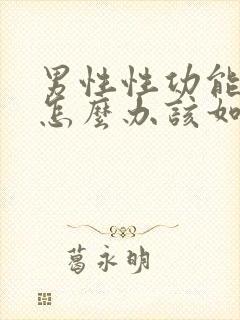 男性性功能
怎麼办該如
葛永明